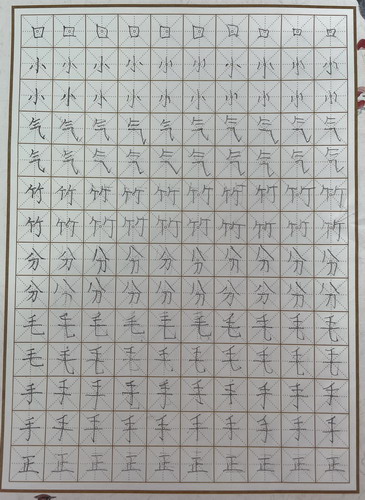 口口口口口口口口口口
小小小小小小小小小小
小小小小小小小小小小
气气气气气气气气气气
气气气气气气气气气气
竹竹竹竹竹竹竹竹竹竹
竹竹竹竹竹竹竹竹竹竹
分分分分分分分分分分
分分分分分分分分分分
毛毛毛毛毛毛毛毛毛毛
毛毛毛毛毛毛毛毛毛毛
手手手手手手手手手手
手手手手手手手手手手
正正正正正正正正正正